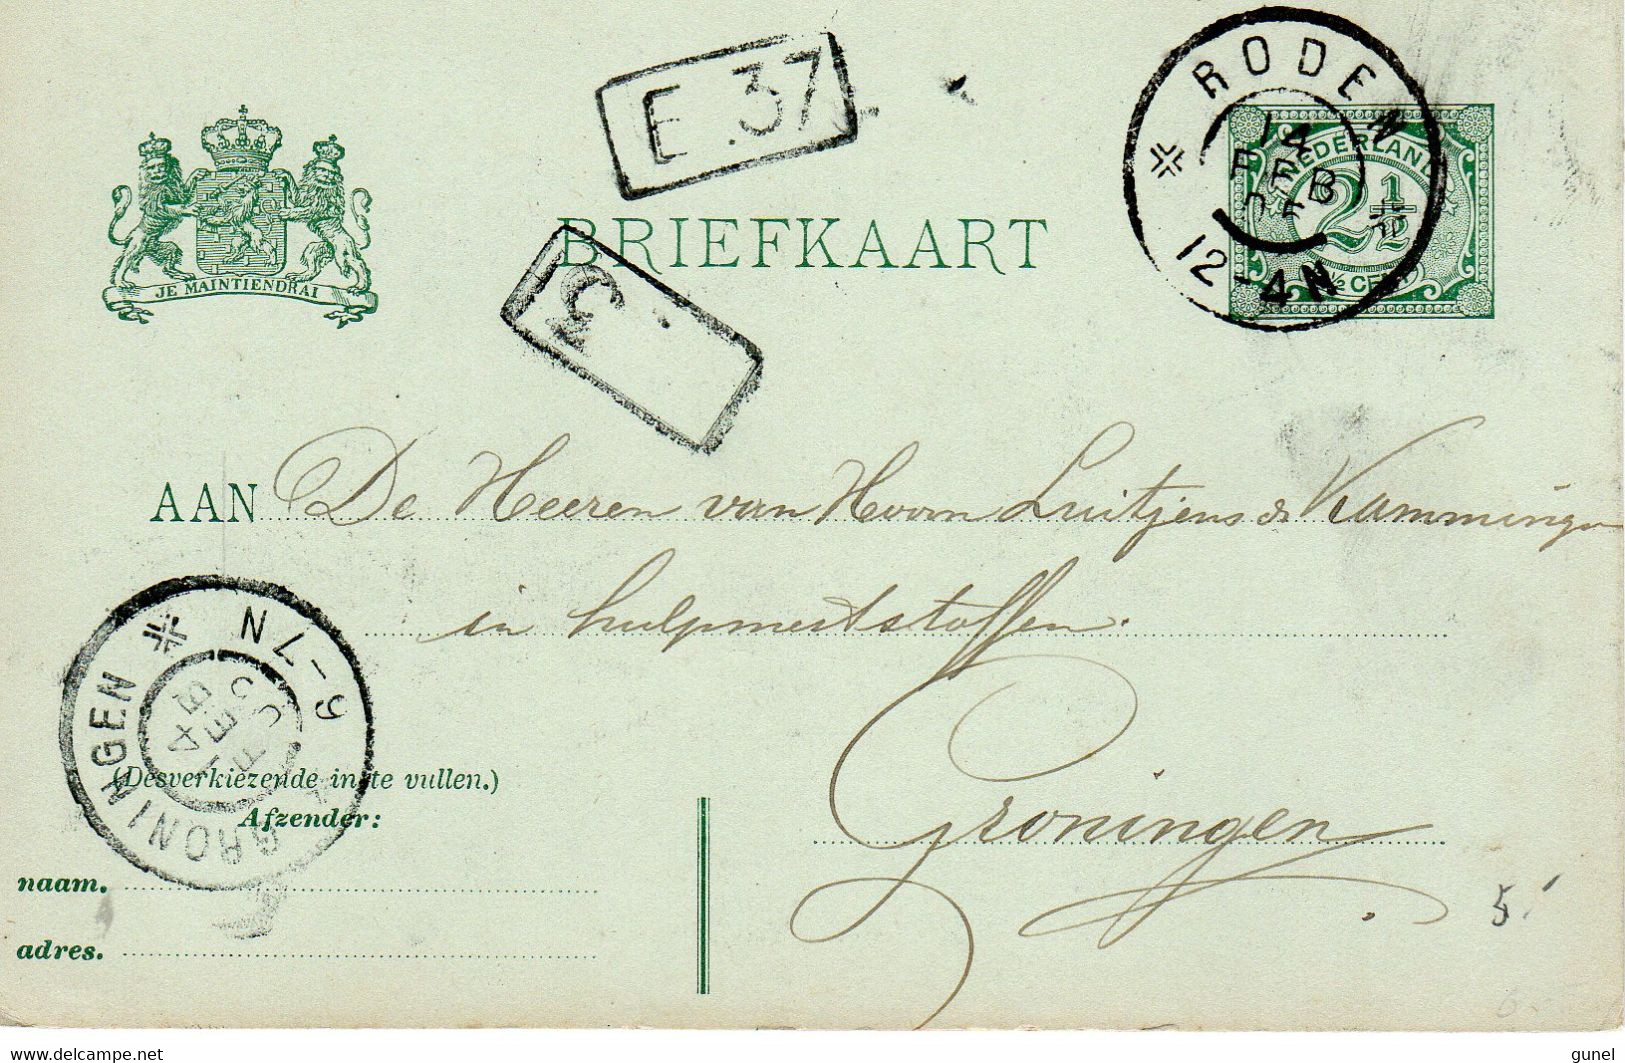 E 37
RODEN
14
FEB
12-4N
NEDERLAND
2½
2½ CENT
JE MAINTIENDRAI
BRIEFKAART
3
AAN De Heeren van Hoorn Luitjens & Kamminga
in hulpmeststoffen.
Groningen
GRONINGEN
6-7N
14 FEB
(Desverkiezende in te vullen.)
Afzender:
naam.
adres.
5
www.delcampe.net
gunel